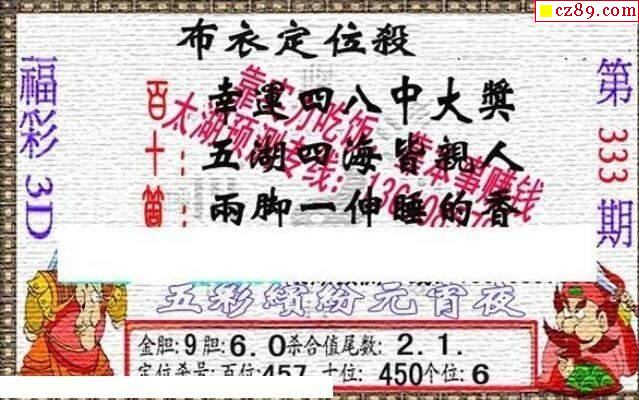 cz89.com
布衣定位殺
福彩3D
第333期
百十箇
幸運四八中大獎
五湖四海皆親人
兩脚一伸睡的香
靠实力吃饭 靠本事赚钱
太湖预测专线:
五彩缤纷元宵夜
金胆:9胆:6.0杀合值尾数:2.1.
定位杀号:百位:457 十位:450个位:6